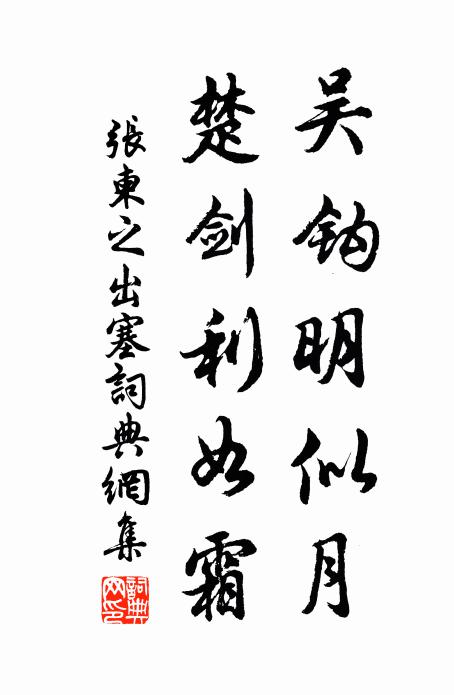 吴钩明似月
楚剑利如霜
張東之出塞詞典網集
詞典网印